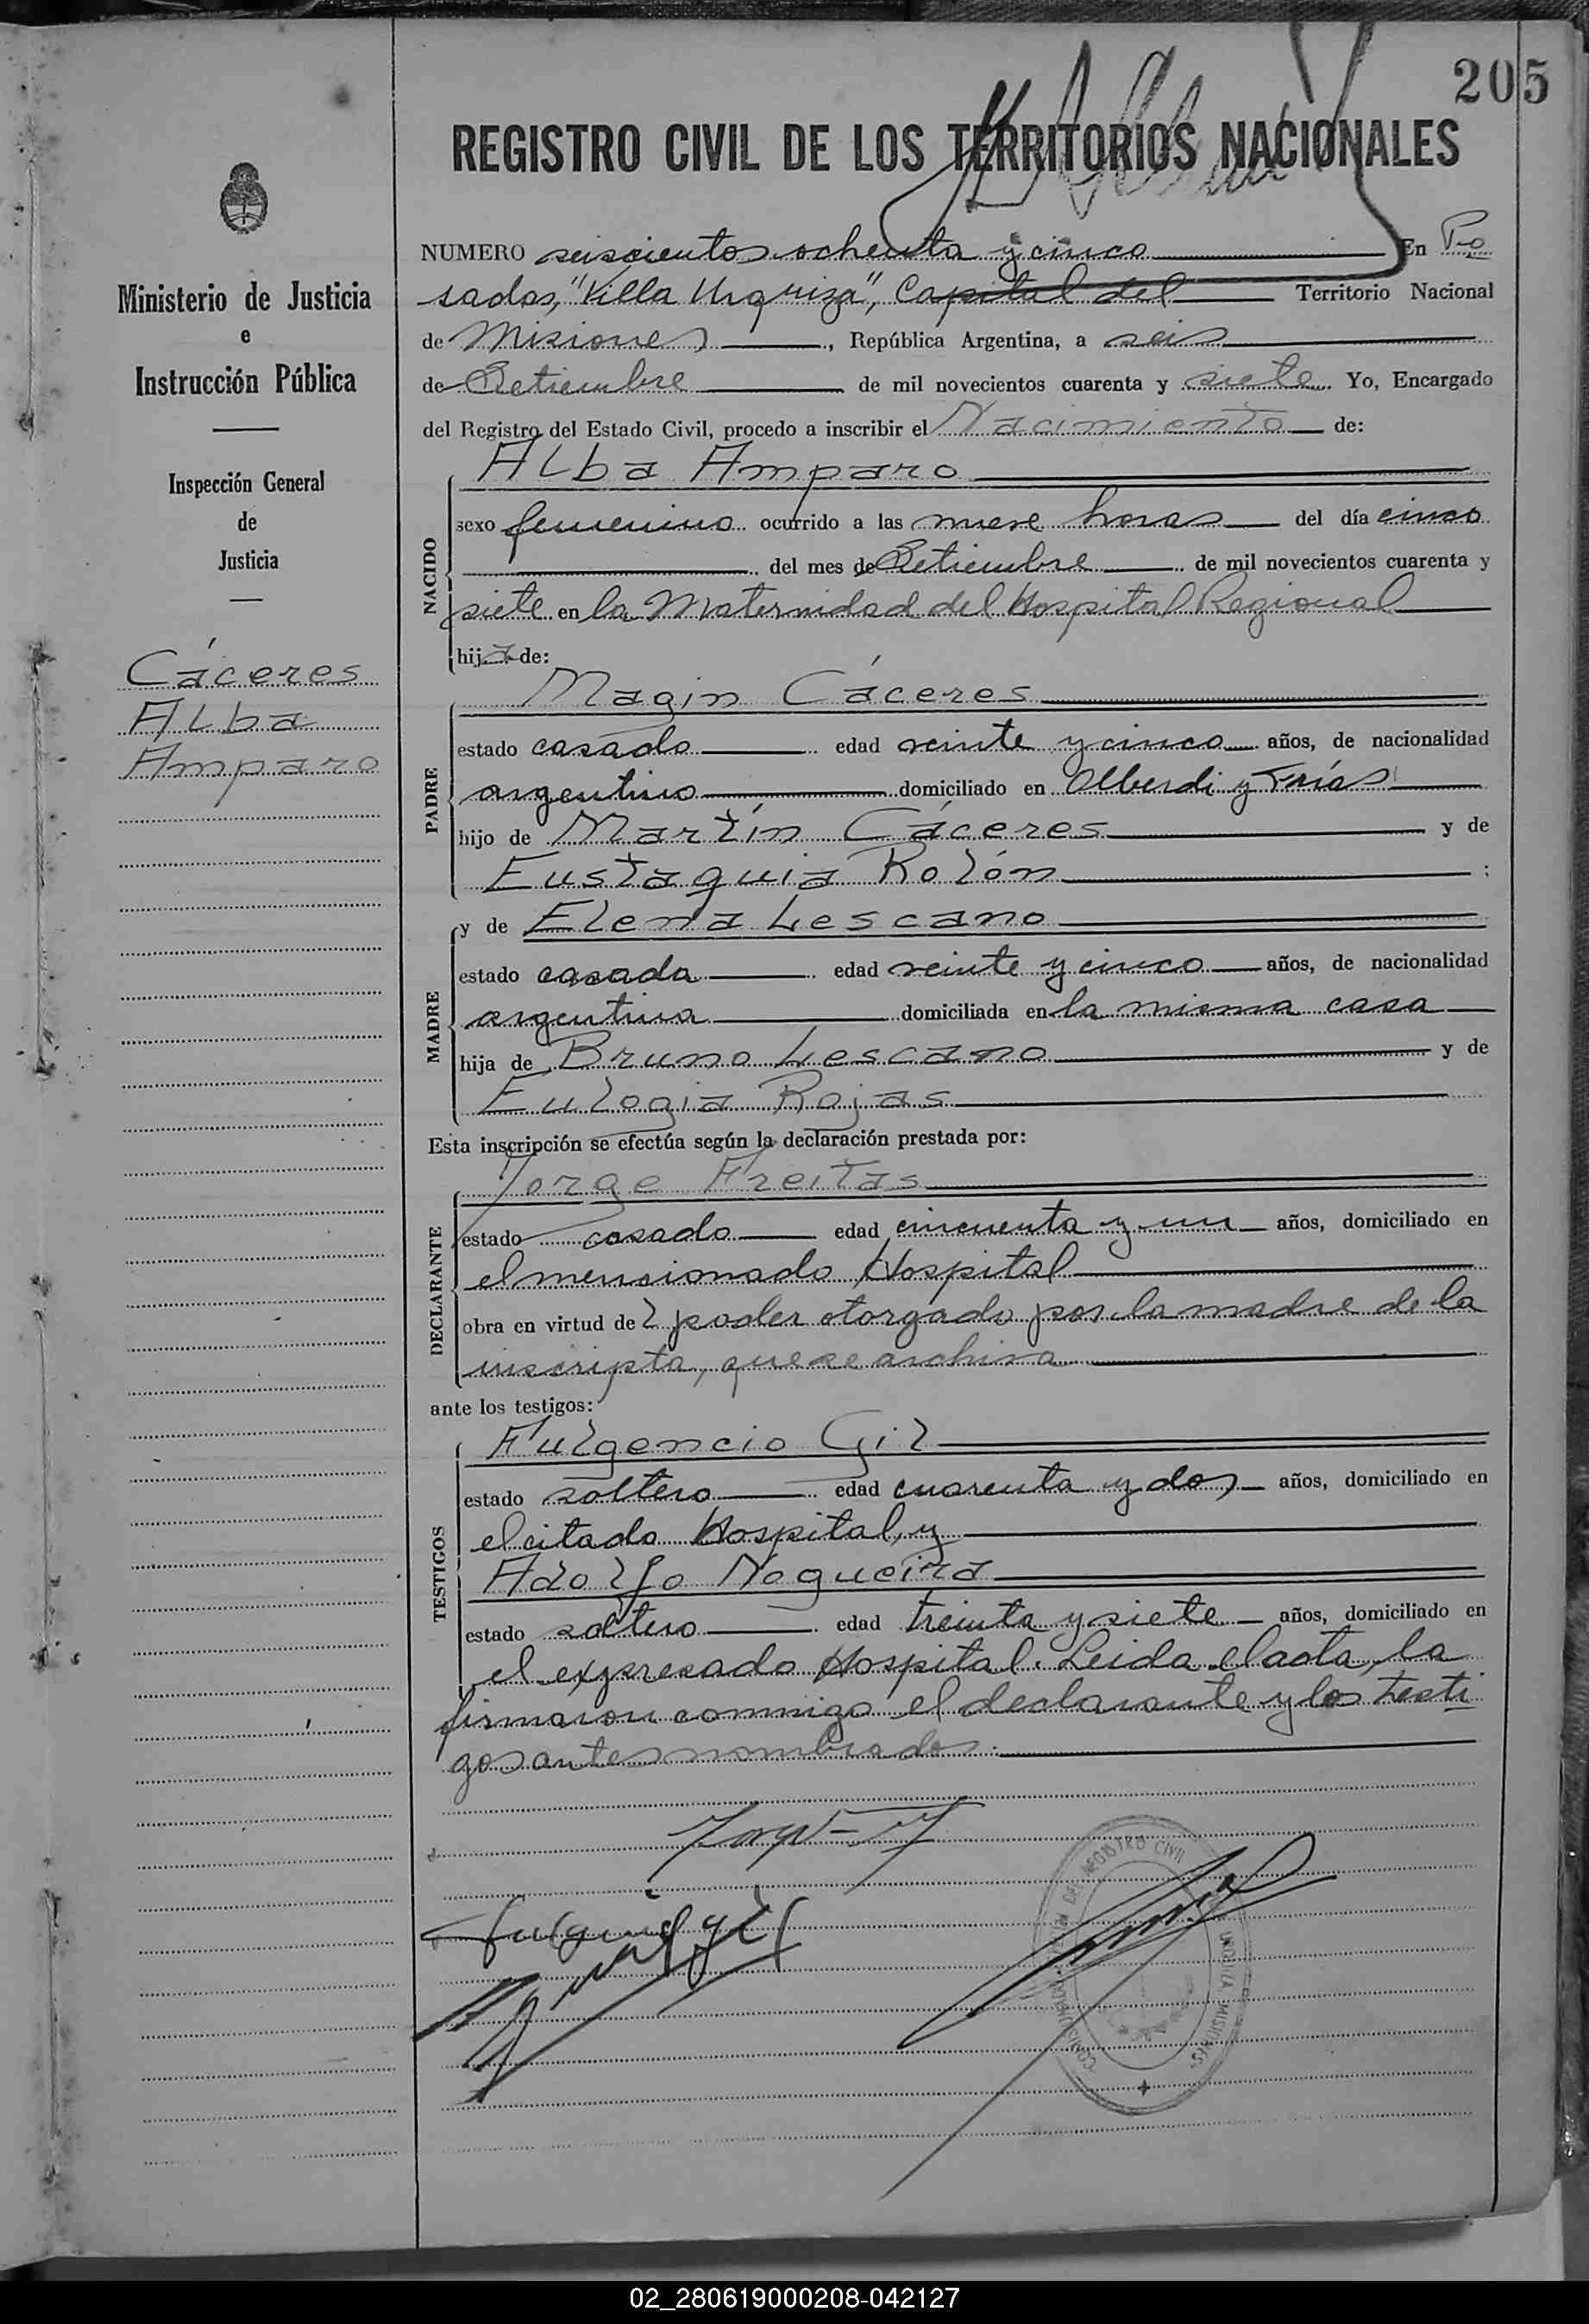 205
REGISTRO CIVIL DE LOS TERRITORIOS NACIONALES
NUMERO seiscientos ochenta y cinco En Po
sadas, "Villa Urquiza", Capital del Territorio Nacional
de Misiones, República Argentina, a seis
de Setiembre de mil novecientos cuarenta y siete Yo, Encargado
del Registro del Estado Civil, procedo a inscribir el Nacimiento de:
Ministerio de Justicia
e
Instrucción Pública
Inspección General
de
Justicia
Cáceres
Alba
Amparo
NACIDO
Alba Amparo
sexo femenino ocurrido a las nueve horas del día cinco
del mes de Setiembre de mil novecientos cuarenta y
siete en la Maternidad del Hospital Regional
hija de:
PADRE
Magin Cáceres
estado casado edad veinte y cinco años, de nacionalidad
argentino domiciliado en Alberdi y Frías
hijo de Martín Cáceres y de
Eustaquia Rolón;
MADRE
y de Elena Lescano
estado casada edad veinte y cinco años, de nacionalidad
argentina domiciliada en la misma casa
hija de Bruno Lescano y de
Eulogia Rojas
Esta inscripción se efectúa según la declaración prestada por:
DECLARANTE
Jorge Freitas
estado casado edad cincuenta y un años, domiciliado en
el mencionado Hospital
obra en virtud del poder otorgado por la madre de la
inscripta, que se archiva
ante los testigos:
TESTIGOS
Fulgencio Gil
estado soltero edad cuarenta y dos años, domiciliado en
el citado Hospital, y
Adolfo Nogueira
estado soltero edad treinta y siete años, domiciliado en
el expresado Hospital. Leida el acta, la
firmaron conmigo el declarante y los testi
gos antes nombrados.
REGISTRO CIVIL
02_280619000208-042127